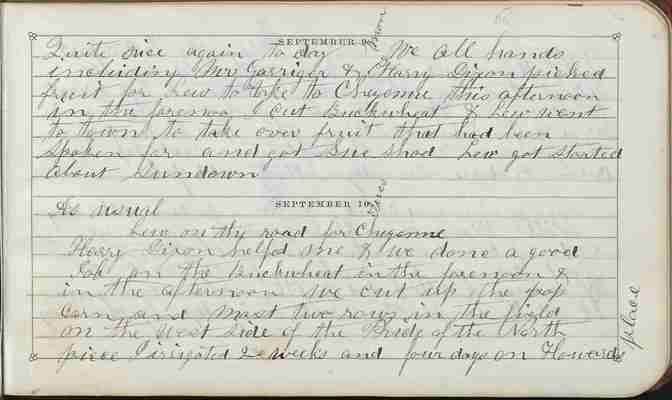 SEPTEMBER 9. Mon
Quite nice again to day We all hands
including Mr Garrigu & Harry Dixon picked
fruit for Lew to take to Cheyenne this afternoon
in the forenoo I cut Buckwheat & Lew went
to town to take over fruit that had been
spoken for and got Bue shod Lew got started
about Sundown
SEPTEMBER 10. Tues
As usual
Lew on thy road for Cheyenne
Harry Dixon helpd me & we done a good
Job on the Buckwheat in the forenoon &
in the afternoon we cut up the pop
corn and most two rows in the field
on the west side of the Bride of the North
piece I irigated 2 weeks and four days on Howards
place